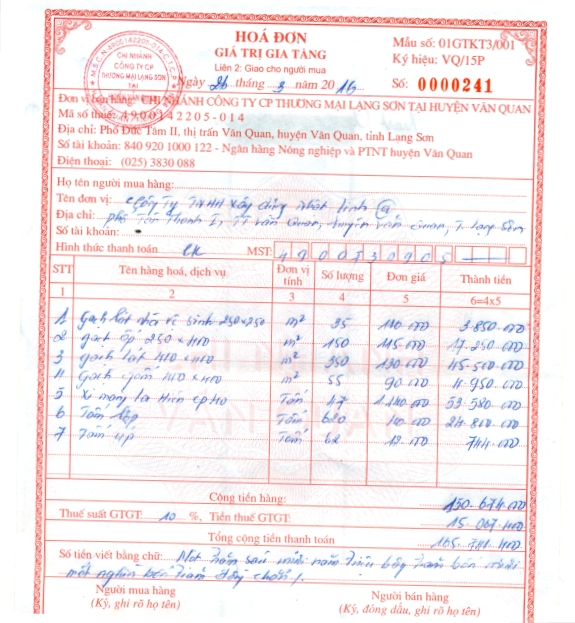 HOÁ ĐƠN
GIÁ TRỊ GIA TĂNG
Liên 2: Giao cho người mua
Ngày 26 tháng 3 năm 2016
Mẫu số: 01GTKT3/001
Ký hiệu: VQ/15P
Số: 0000241
M.S.C.N: 4900142205-014
CHI NHÁNH
CÔNG TY CP
THƯƠNG MẠI LẠNG SƠN
TẠI
Đơn vị bán hàng: CHI NHÁNH CÔNG TY CP THƯƠNG MẠI LẠNG SƠN TẠI HUYỆN VĂN QUAN
Mã số thuế: 4900142205-014
Địa chỉ: Phố Đức Tâm II, thị trấn Văn Quan, huyện Văn Quan, tỉnh Lạng Sơn
Số tài khoản: 840 920 1000 122 - Ngân hàng Nông nghiệp và PTNT huyện Văn Quan
Điện thoại: (025) 3830 088
Họ tên người mua hàng:
Tên đơn vị: Công Ty TNHH xây dựng nhật linh
Địa chỉ: phố Tân Thanh I, TT văn Quan, huyện văn Quan, T. Lạng Sơn
Số tài khoản:
Hình thức thanh toán CK MST: 4900730905
STT Tên hàng hoá, dịch vụ Đơn vị tính Số lượng Đơn giá Thành tiền
1 2 3 4 5 6=4x5
1 Gạch lát nhà vệ sinh 250x250 m² 35 110.000 3.850.000
2 gạch ốp 250 x 400 m² 150 115.000 17.250.000
3 gạch lát 400 x 400 m² 350 130.000 45.500.000
4 Gạch gốm 400 x 400 m² 55 90.000 4.950.000
5 Xi măng La Hiên Tấn 47 1.140.000 53.580.000
6 Tấm lợp Tấm 620 40.000 24.800.000
7 Tấm úp Tấm 62 12.000 744.000
Cộng tiền hàng: 150.674.000
Thuế suất GTGT: 10 %, Tiền thuế GTGT: 15.067.400
Tổng cộng tiền thanh toán 165.741.400
Số tiền viết bằng chữ: Một trăm sáu mươi năm triệu bảy trăm bốn mươi
một nghìn bốn trăm đồng chẵn /.
Người mua hàng Người bán hàng
(Ký, ghi rõ họ tên) (Ký, đóng dấu, ghi rõ họ tên)